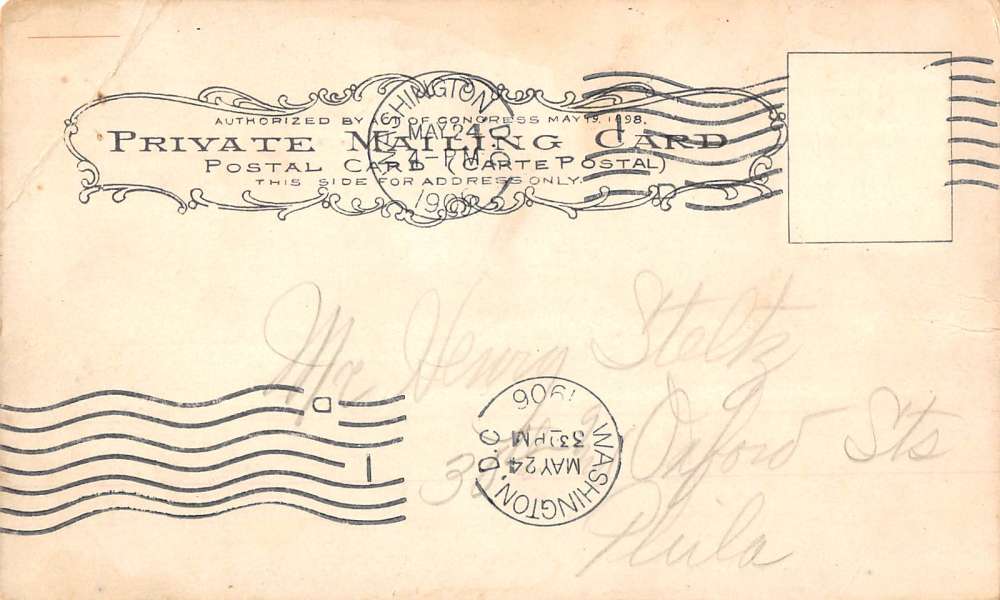 AUTHORIZED BY ACT OF CONGRESS MAY 19, 1898.
PRIVATE MAILING CARD
POSTAL CARD (CARTE POSTAL)
THIS SIDE FOR ADDRESS ONLY.
WASHINGTON, D.C.
MAY 24
PM
190
1
D
Mr Henry Steltz
Oxford Sts
Phila
D
1
WASHINGTON, D.C.
MAY 24
PM
1906